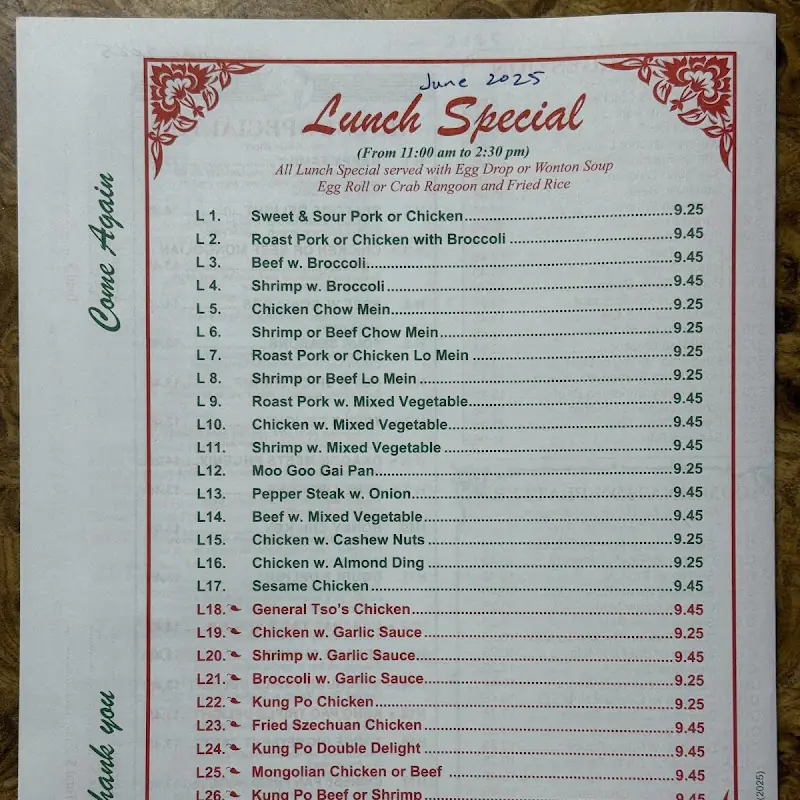 June 2025
Lunch Special
(From 11:00 am to 2:30 pm)
All Lunch Special served with Egg Drop or Wonton Soup
Egg Roll or Crab Rangoon and Fried Rice
L 1. Sweet & Sour Pork or Chicken 9.25
L 2. Roast Pork or Chicken with Broccoli 9.45
L 3. Beef w. Broccoli 9.45
L 4. Shrimp w. Broccoli 9.45
L 5. Chicken Chow Mein 9.25
L 6. Shrimp or Beef Chow Mein 9.25
L 7. Roast Pork or Chicken Lo Mein 9.25
L 8. Shrimp or Beef Lo Mein 9.25
L 9. Roast Pork w. Mixed Vegetable 9.45
L10. Chicken w. Mixed Vegetable 9.45
L11. Shrimp w. Mixed Vegetable 9.45
L12. Moo Goo Gai Pan 9.25
L13. Pepper Steak w. Onion 9.45
L14. Beef w. Mixed Vegetable 9.45
L15. Chicken w. Cashew Nuts 9.25
L16. Chicken w. Almond Ding 9.25
L17. Sesame Chicken 9.45
L18. General Tso's Chicken 9.45
L19. Chicken w. Garlic Sauce 9.25
L20. Shrimp w. Garlic Sauce 9.45
L21. Broccoli w. Garlic Sauce 9.25
L22. Kung Po Chicken 9.25
L23. Fried Szechuan Chicken 9.45
L24. Kung Po Double Delight 9.45
L25. Mongolian Chicken or Beef 9.45
L26. Kung Po Beef or Shrimp 9.45
Come Again
hank you
2025)